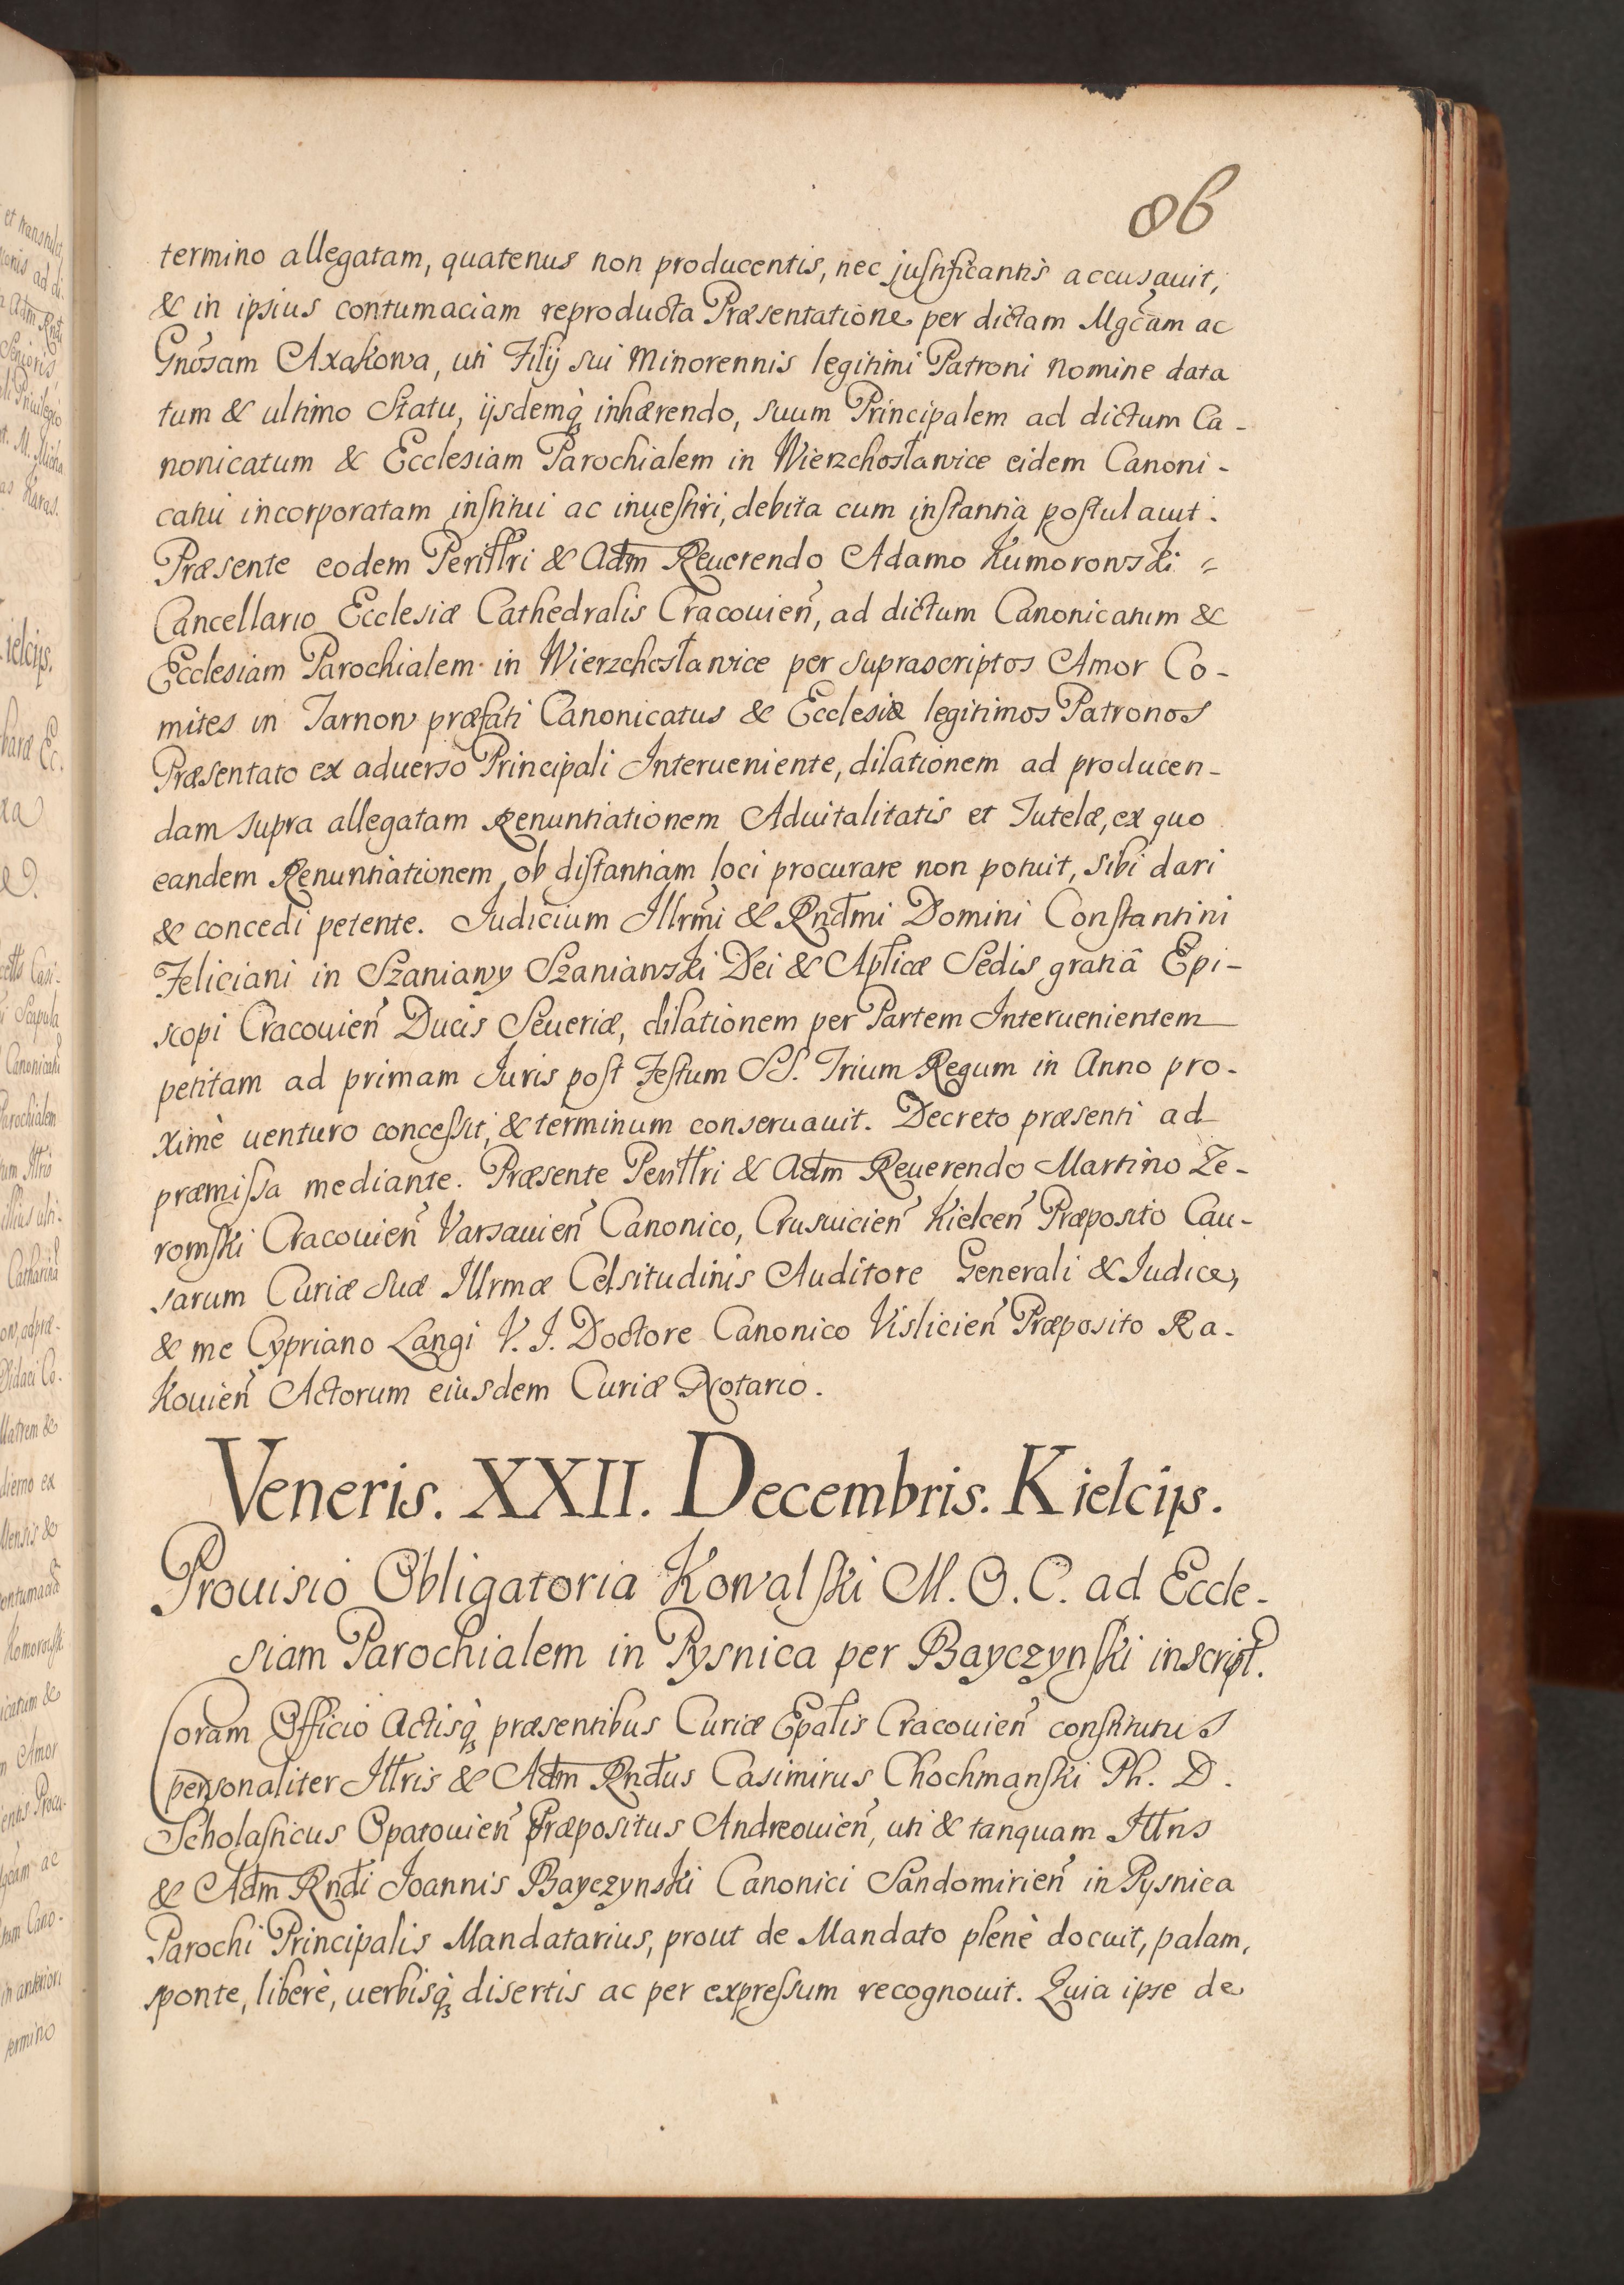 86
termino allegatam, quatenus non producentis, nec justificantis accusauit,
& in ipsius contumaciam reproducta Præsentatione per dictam Mgcam ac
Gnosam Axakowa, uti Filij sui Minorennis legitimi Patroni nomine data
tum & ultimo Statu, ijsdemq inhærendo, suum Principalem ad dictum Ca-
nonicatum & Ecclesiam Parochialem in Wierzchosławice eidem Canoni-
catui incorporatam institui ac inuestiri, debita cum instantia postulauit.
Præsente eodem Perilltri & Adm Reuerendo Adamo Kumorowski =
Cancellario Ecclesiæ Cathedralis Cracouien, ad dictum Canonicatum &
Ecclesiam Parochialem in Wierzchosławice per suprascriptos Amor Co-
mites in Tarnow præfati Canonicatus & Ecclesiæ legitimos Patronos
Præsentato ex aduerso Principali Interueniente, dilationem ad producen-
dam supra allegatam Renuntiationem Aduitalitatis et Tutelæ, ex quo
eandem Renuntiationem, ob distantiam loci procurare non potuit, sibi dari
& concedi petente. Judicium Illrmi & Rndmi Domini Constantini
Feliciani in Szaniawy Szaniawski Dei & Aplicæ Sedis gratiâ Epi-
scopi Cracouien Ducis Seueriæ, dilationem per Partem Interuenientem
petitam ad primam Juris post Festum SS. Trium Regum in Anno pro-
ximè uenturo concessit, & terminum conseruauit. Decreto præsenti ad
præmissa mediante. Præsente Perilltri & Adm Reuerendo Martino Że-
romski Cracouien Varsauien Canonico, Crusuicien Kielcen Præposito Cau-
sarum Curiæ Suæ Illrmæ Celsitudinis Auditore Generali & Iudice,
& me Cypriano Langi V. J. Doctore Canonico Vislicien Præposito Ra-
kouien Actorum eiusdem Curiæ Notario.
Veneris. XXII. Decembris. Kielcijs.
Prouisio Obligatoria Kowalski M. O. C. ad Eccle-
siam Parochialem in Pysnica per Bayczynski inscript.
Coram Officio Actisq præsentibus Curiæ Epalis Cracouien constitutus
personaliter Illtris & Adm Rndus Casimirus Chochmanski Ph. D.
Scholasticus Opatouien Præpositus Andreouien, uti & tanquam Illtris
& Adm Rndi Joannis Bayczynski Canonici Sandomirien in Pysnica
Parochi Principalis Mandatarius, prout de Mandato plenè docuit, palam,
sponte, liberè, uerbisq disertis ac per expressum recognouit. Quia ipse de